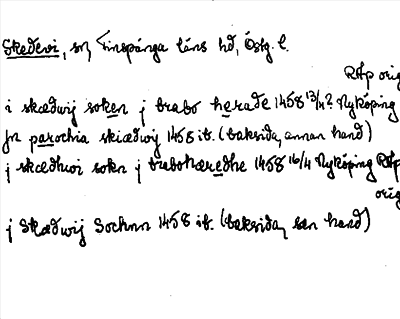 Skedevi, sn, Finspånga läns hd, Östg. l.
RAp orig
i skædwij soken j brabo herade 1458 13/4? Nyköping
jn parochia skiædwij 1458 ib. (baksida, annan hand)
j skædhwi sokn j brabohæredhe 1458 16/4 Nyköping RAp
orig
j Skædwij Sochnn 1458 ib. (baksida, sen hand)